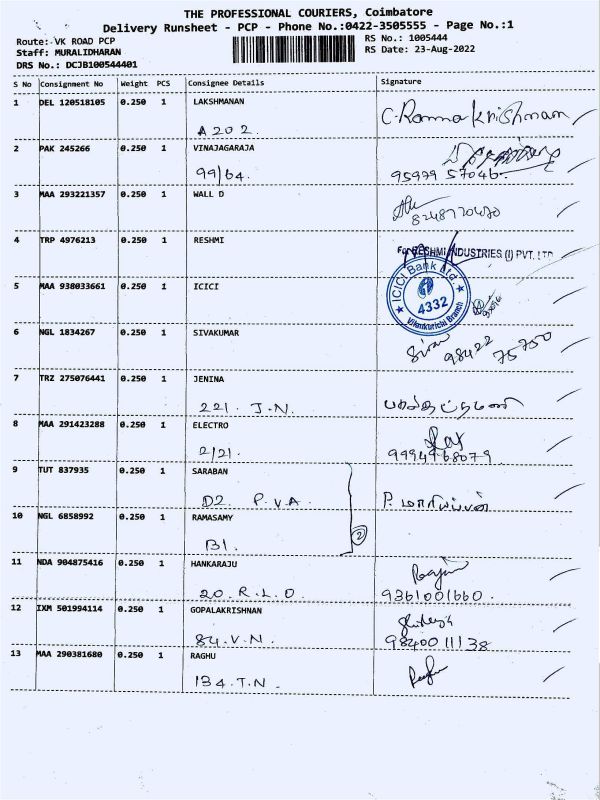 THE PROFESSIONAL COURIERS, Coimbatore
Delivery Runsheet - PCP - Phone No.:0422-3505555 - Page No.:1
Route: VK ROAD PCP
RS No.: 1005444
Staff: MURALIDHARAN
RS Date: 23-Aug-2022
DRS No.: DCJB100544401
S No Consignment No Weight PCS Consignee Details Signature
1 DEL 120518105 0.250 1 LAKSHMANAN
A 202. C. Ramakrishnan
2 PAK 245266 0.250 1 VINAJAGARAJA
99/64. 95979 57046.
3 MAA 293221357 0.250 1 WALL D
8248770470
4 TRP 4976213 0.250 1 RESHMI
For RESHMI INDUSTRIES (I) PVT. LTD
5 MAA 938033661 0.250 1 ICICI
ICICI Bank Ltd
4332
Vilankurichi Branch
6 NGL 1834267 0.250 1 SIVAKUMAR
Siva 98422 75750
7 TRZ 275076441 0.250 1 JENINA
221. J.N.
8 MAA 291423288 0.250 1 ELECTRO
2/21. 9994968079.
9 TUT 837935 0.250 1 SARABAN
D2. P.V.A. P. மாரியப்பன்
10 NGL 6858992 0.250 1 RAMASAMY
B1. 2
11 NDA 904875416 0.250 1 HANKARAJU
20. R.L.O. 9361001660.
12 IXM 501994114 0.250 1 GOPALAKRISHNAN
84. V.N. 9840011138
13 MAA 290381680 0.250 1 RAGHU
134. T.N.